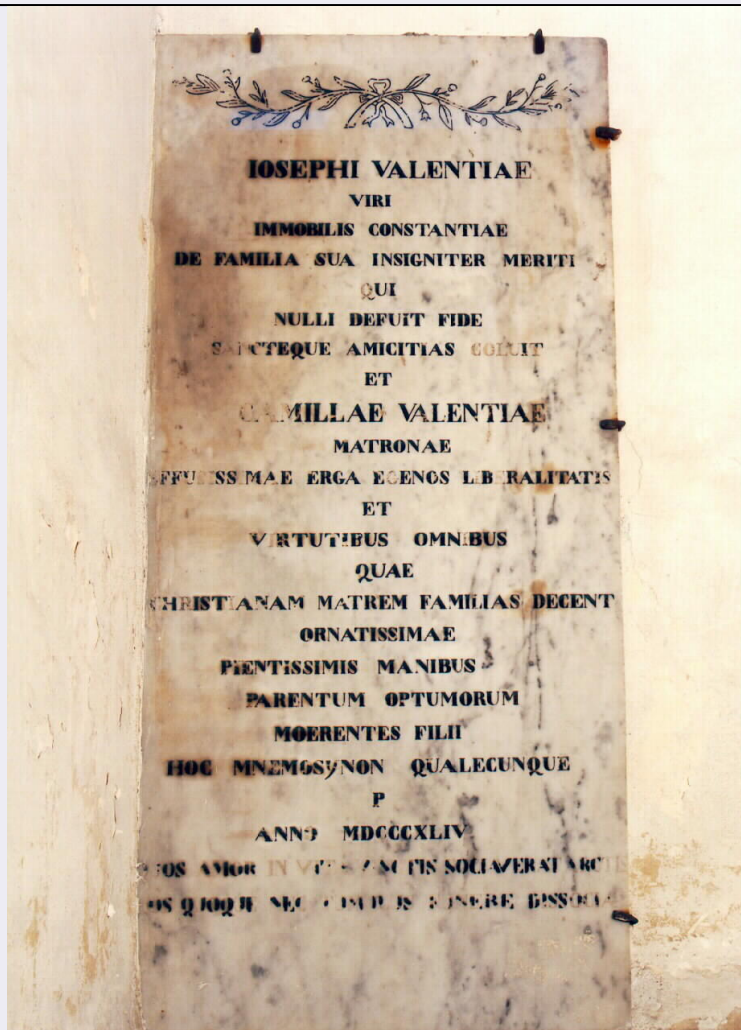 IOSEPHI VALENTIAE
VIRI
IMMOBILIS CONSTANTIAE
DE FAMILIA SUA INSIGNITER MERITI
QUI
NULLI DEFUIT FIDE
SANCTEQUE AMICITIAS COLUIT
ET
CAMILLAE VALENTIAE
MATRONAE
EFFUSISSIMAE ERGA EGENOS LIBERALITATIS
ET
VIRTUTIBUS OMNIBUS
QUAE
CHRISTIANAM MATREM FAMILIAS DECENT
ORNATISSIMAE
PIENTISSIMIS MANIBUS
PARENTUM OPTUMORUM
MOERENTES FILII
HOC MNEMOSYNON QUALECUNQUE
P
ANNO MDCCCXLIV
AMOR IN SOCIAVERAT
QUOQUE NEC FUNERE